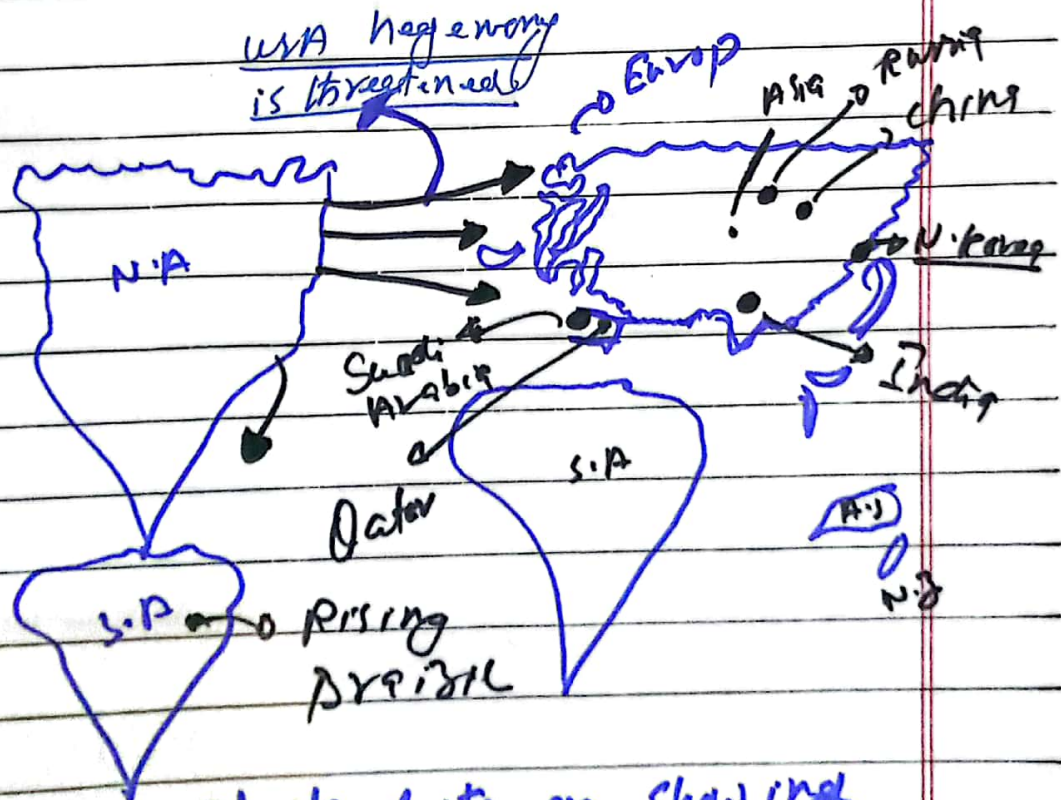 USA hegemony
is threatened
Europ
Asia
Russia
China
N.A
N.Korea
Saudi
Arabia
India
S.A
Qatar
A.S
N.Z
S.A
Rising
Braizil
showing